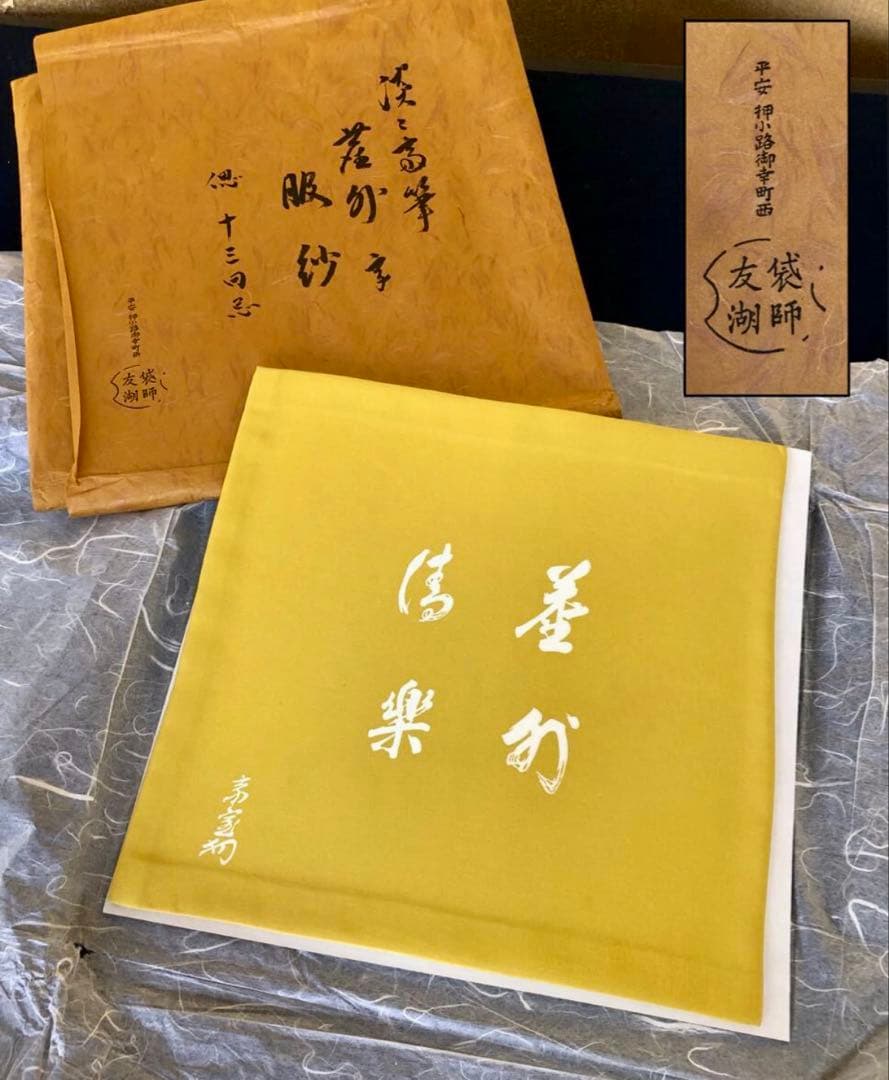 淡々斎筆
塵外字
服紗
偲 十三回忌
平安 押小路御幸町西
袋師
友湖
平安 押小路御幸町西
袋師
友湖
塵外
清樂